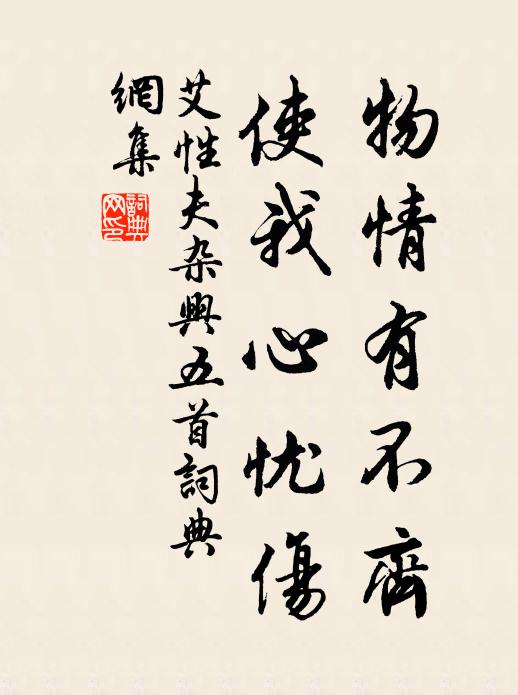 物情有不齊
使我心忧傷
艾性夫杂興五首詞典
網集
詞典
网印